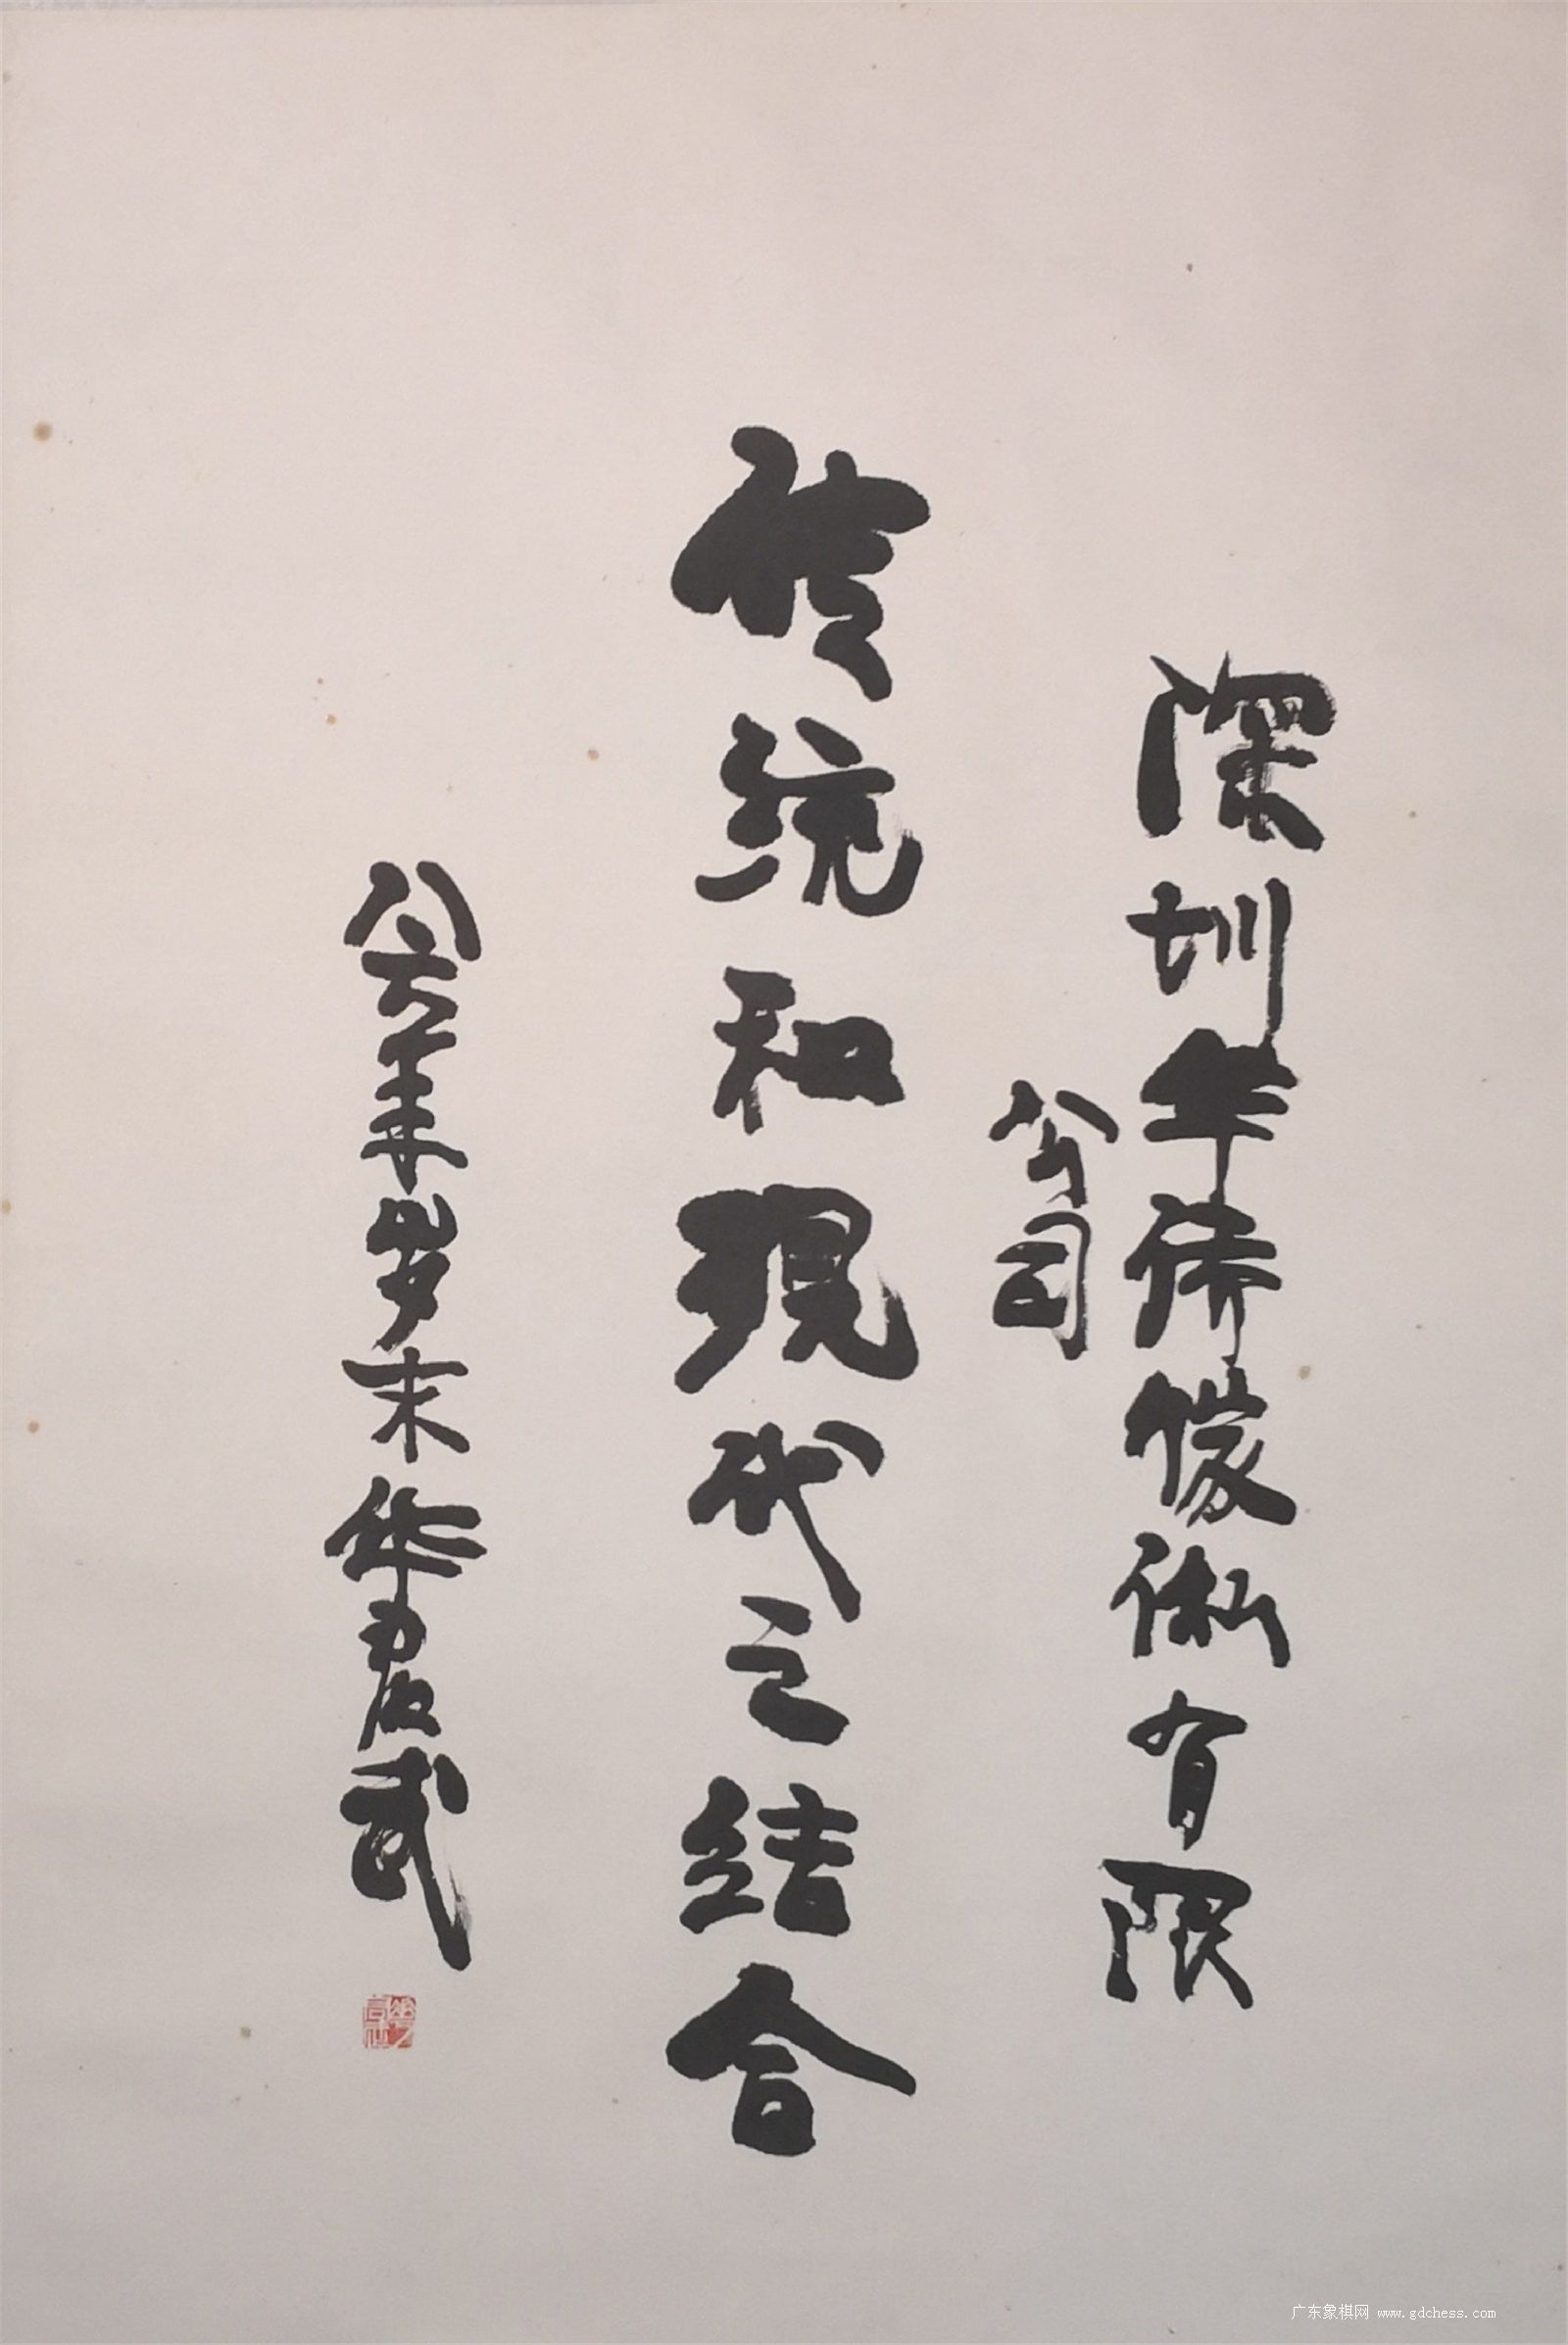 深圳华侨傢俬有限
公司
传统和现代之结合
八六年岁末华君武
广东象棋网 www.gdchess.com